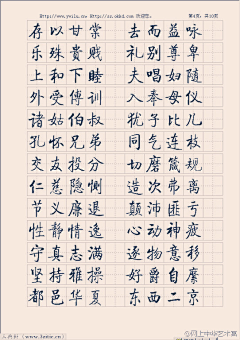 存以甘棠 去而益咏
乐殊贵贱 礼别尊卑
上和下睦 夫唱妇随
外受傅训 入奉母仪
诸姑伯叔 犹子比儿
孔怀兄弟 同气连枝
交友投分 切磨箴规
仁慈隐恻 造次弗离
节义廉退 颠沛匪亏
性静情逸 心动神疲
守真志满 逐物意移
坚持雅操 好爵自縻
都邑华夏 东西二京